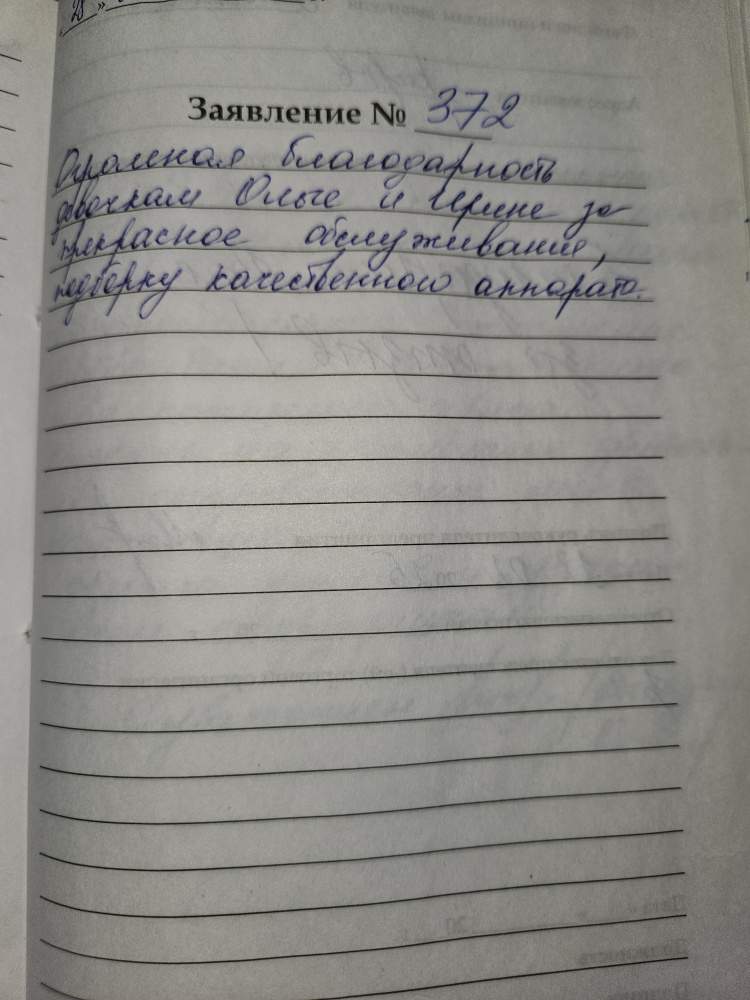 Заявление № 372
Огромная благодарность
девочкам Ольге и Ирине за
прекрасное обслуживание,
подборку качественного аппарата.